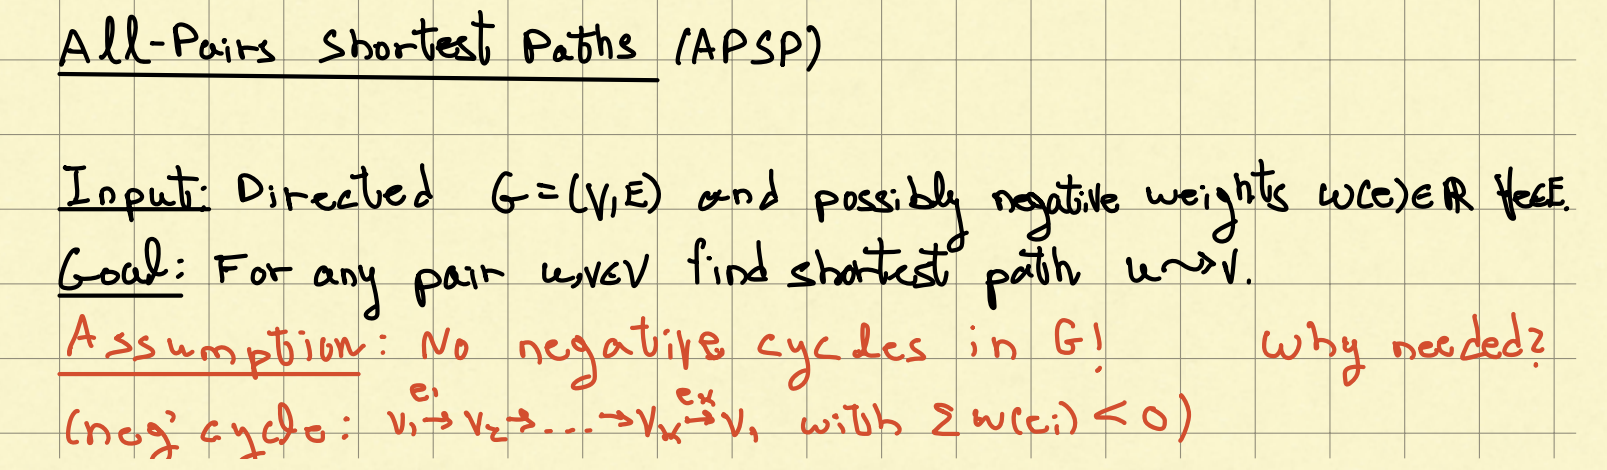 All-Pairs Shortest Paths (APSP)
Input: Directed G=(V,E) and possibly negative weights w(e)∈ℝ ∀e∈E.
Goal: For any pair u,v∈V find shortest path u⇝v.
Assumption: No negative cycles in G! Why needed?
(neg' cycle: v₁ →^{e₁} v₂ → ... → vₖ →^{eₖ} v₁ with Σw(eᵢ) < 0)